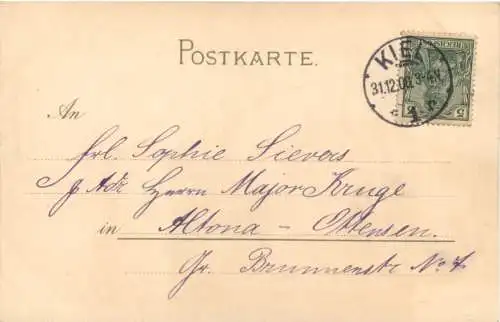 POSTKARTE.
KIEL
31.12.00. 3-4 N.
1
5 5
An
Frl. Sophie Sievers
p Adr Herrn Major Kruge
in Altona - Ottensen.
Gr. Brunnenstr No 7